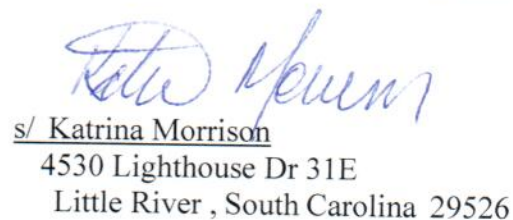 s/ Katrina Morrison
4530 Lighthouse Dr 31E
Little River , South Carolina 29526